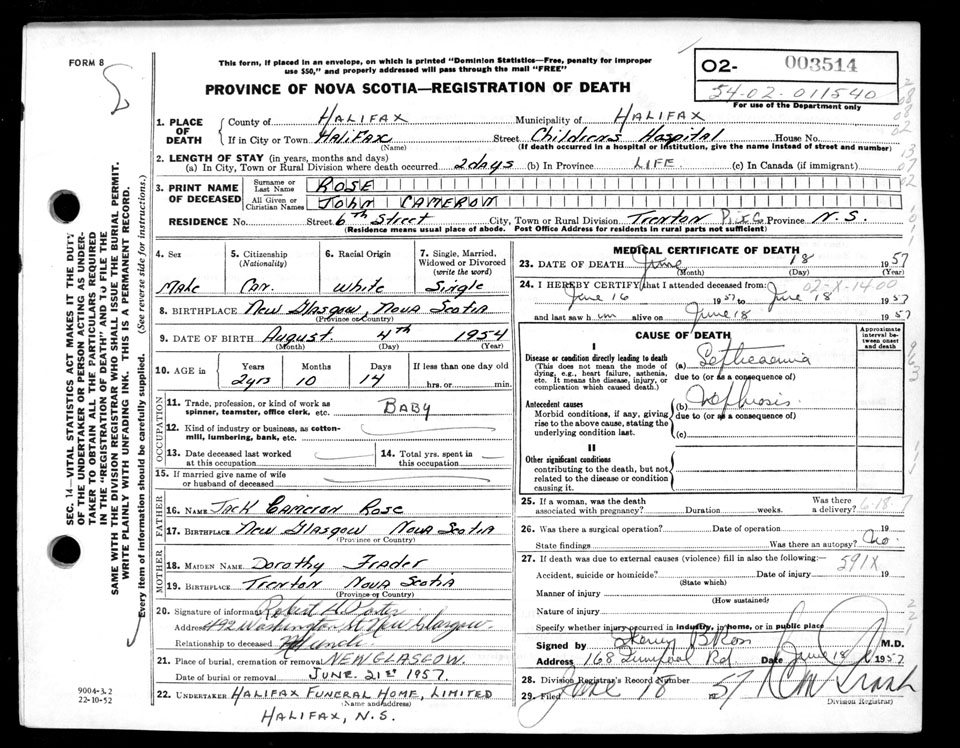 FORM 8
This form, if placed in an envelope, on which is printed "Dominion Statistics—Free, penalty for improper
use $50," and properly addressed will pass through the mail "FREE"
PROVINCE OF NOVA SCOTIA—REGISTRATION OF DEATH
O2- 003514
54-02-011540
For use of the Department only
1. PLACE OF DEATH
County of HALIFAX Municipality of HALIFAX
If in City or Town HALIFAX Street Children's Hospital House No.
(Name) (If death occurred in a hospital or institution, give the name instead of street and number)
2. LENGTH OF STAY (in years, months and days)
(a) In City, Town or Rural Division where death occurred 2 days (b) In Province LIFE (c) In Canada (if immigrant)
3. PRINT NAME OF DECEASED
Surname or Last Name ROSE
All Given or Christian Names JOHN CAMERON
RESIDENCE No. Street 6th Street City, Town or Rural Division Trenton Province N.S.
(Residence means usual place of abode. Post Office Address for residents in rural parts not sufficient)
4. Sex
Male
5. Citizenship (Nationality)
Can.
6. Racial Origin
White
7. Single, Married, Widowed or Divorced (write the word)
Single
8. BIRTHPLACE New Glasgow, Nova Scotia
(Province or Country)
9. DATE OF BIRTH August 4th 1954
(Month) (Day) (Year)
10. AGE in Years Months Days If less than one day old
2yrs 10 14 hrs. or min.
OCCUPATION
11. Trade, profession, or kind of work as
spinner, teamster, office clerk, etc. BABY
12. Kind of industry or business, as cotton-
mill, lumbering, bank, etc.
13. Date deceased last worked
at this occupation
14. Total yrs. spent in
this occupation
15. If married give name of wife
or husband of deceased
FATHER
16. NAME Jack Cameron Rose
17. BIRTHPLACE New Glasgow Nova Scotia
(Province or Country)
MOTHER
18. MAIDEN NAME Dorothy
19. BIRTHPLACE Trenton Nova Scotia
(Province or Country)
20. Signature of informant Robert H
Address 492 Washington St New Glasgow
Relationship to deceased Uncle
21. Place of burial, cremation or removal NEW GLASGOW.
Date of burial or removal JUNE 21st 1957.
22. UNDERTAKER HALIFAX FUNERAL HOME, LIMITED
(Name and address)
HALIFAX, N.S.
9004-3.2
22-10-52
MEDICAL CERTIFICATE OF DEATH
23. DATE OF DEATH June 18 1957
(Month) (Day) (Year)
24. I HEREBY CERTIFY that I attended deceased from: 02-X-14 00
June 16 1957 to June 18 1957
and last saw h im alive on June 18 1957
CAUSE OF DEATH
Approximate interval between onset and death
I
Disease or condition directly leading to death
(This does not mean the mode of
dying, e.g., heart failure, asthenia,
etc. It means the disease, injury, or
complication which caused death.)
(a) Septicaemia
due to (or as a consequence of)
Antecedent causes
Morbid conditions, if any, giving
rise to the above cause, stating the
underlying condition last.
(b) Nephrosis
due to (or as a consequence of)
(c)
II
Other significant conditions
contributing to the death, but not
related to the disease or condition
causing it.
25. If a woman, was the death Was there
associated with pregnancy? Duration weeks. a delivery? 6-18-7
26. Was there a surgical operation? Date of operation 19
State findings Was there an autopsy? No.
27. If death was due to external causes (violence) fill in also the following:—
591X
Accident, suicide or homicide? Date of injury 19
(State which)
Manner of injury
(How sustained)
Nature of injury
Specify whether injury occurred in industry, in home, or in public place
Signed by B Ross M.D.
Address 168 Rd Date June 18 1957
28. Division Registrar's Record Number
29. Filed June 18 1957
Division Registrar)
SEC. 14—VITAL STATISTICS ACT MAKES IT THE DUTY
OF THE UNDERTAKER OR PERSON ACTING AS UNDER-
TAKER TO OBTAIN ALL THE PARTICULARS REQUIRED
IN THE "REGISTRATION OF DEATH" AND TO FILE THE
SAME WITH THE DIVISION REGISTRAR WHO SHALL ISSUE THE BURIAL PERMIT.
WRITE PLAINLY WITH UNFADING INK. THIS IS A PERMANENT RECORD.
Every item of information should be carefully supplied. (See reverse side for instructions.)